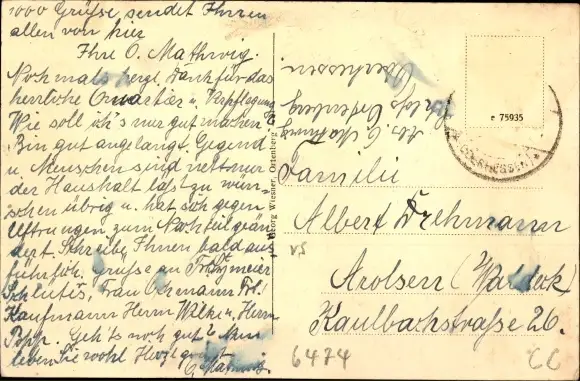 1000 Grüße sendet Ihnen
allen von hier
Ihre O. Mathwig.
Nochmals herzl. Dank für das
herrliche Quartier u. Verpflegung
Wie soll ich's nur gut machen.
Bin gut angelangt. Gegend
u. Menschen sind nett nur
der Haushalt läßt zu wün-
schen übrig u. hat sich gegen
zum Nachteil geän
dert. Schreibe Ihnen bald aus
führlich. Grüße an
Schlüter's, Frau Frl.
Kaufmann Herrn Wilke u. Herrn
Popp. Geht's noch gut? Nun
leben Sie wohl Herzl.
Georg Wiesner, Ortenberg
Abs. O. Mathwig
Ortenberg
Oberhessen.
Familie
Albert Drehmann
Arolsen (Waldeck)
Kaulbachstraße 26.
75935
OBERHESSEN
VS
6474
CC